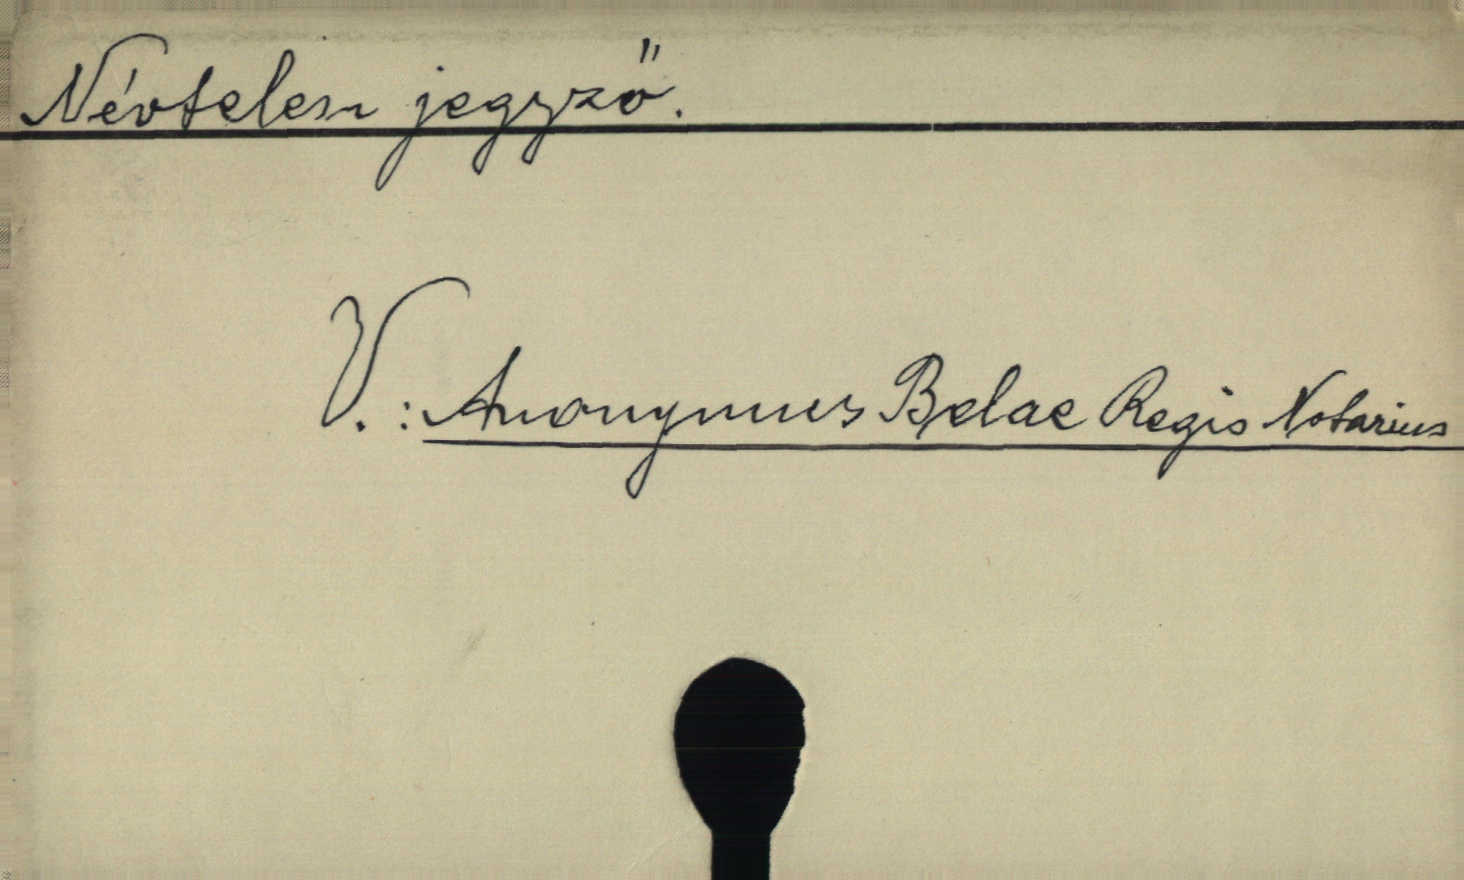 Névtelen jegyző.
V.: Anonymus Belae Regis Notarius